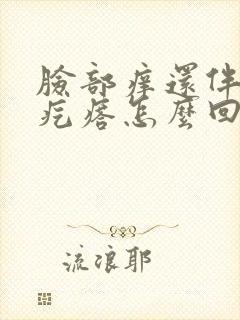 臉部痒還伴
疙瘩怎麼回
流浪耶